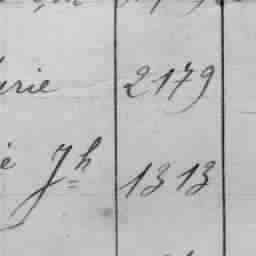 urie 2179
é Jh 1313